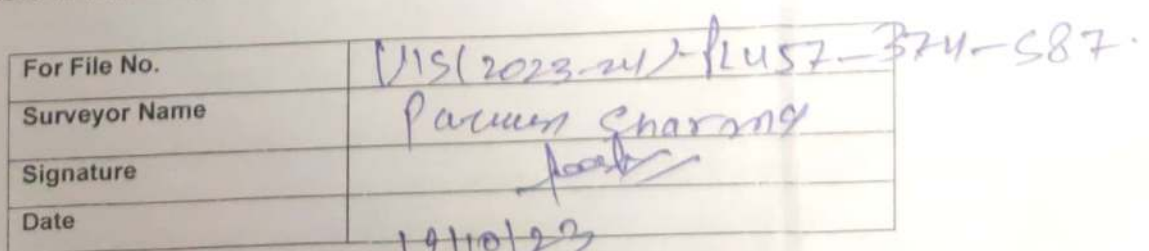 For File No. VIS(2023-24)-PL457-374-587.
Surveyor Name Parveen Sharma
Signature
Date 19/10/23